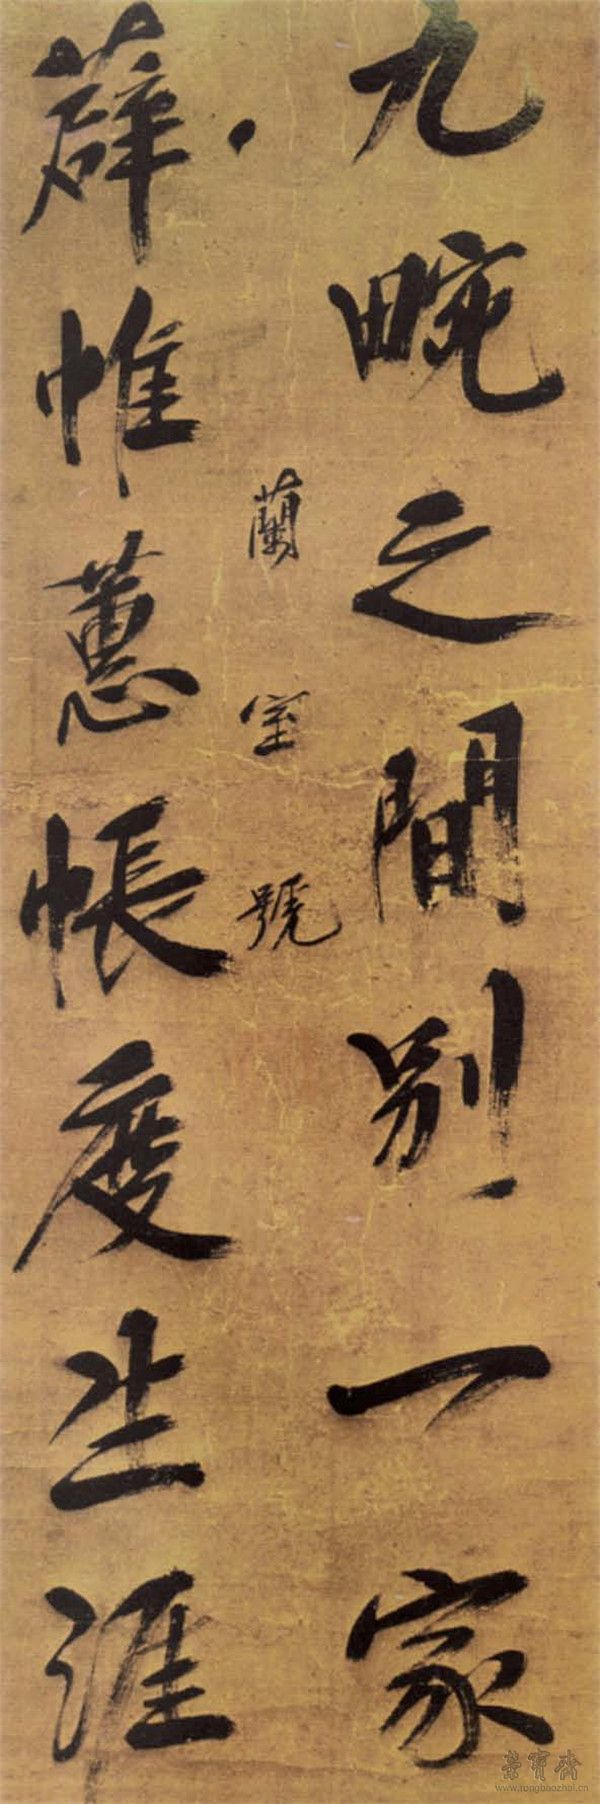 九畹之間別一家
蘭室號
薜帷蕙帳度生涯
荣宝斋
www.rongbaozhai.cn